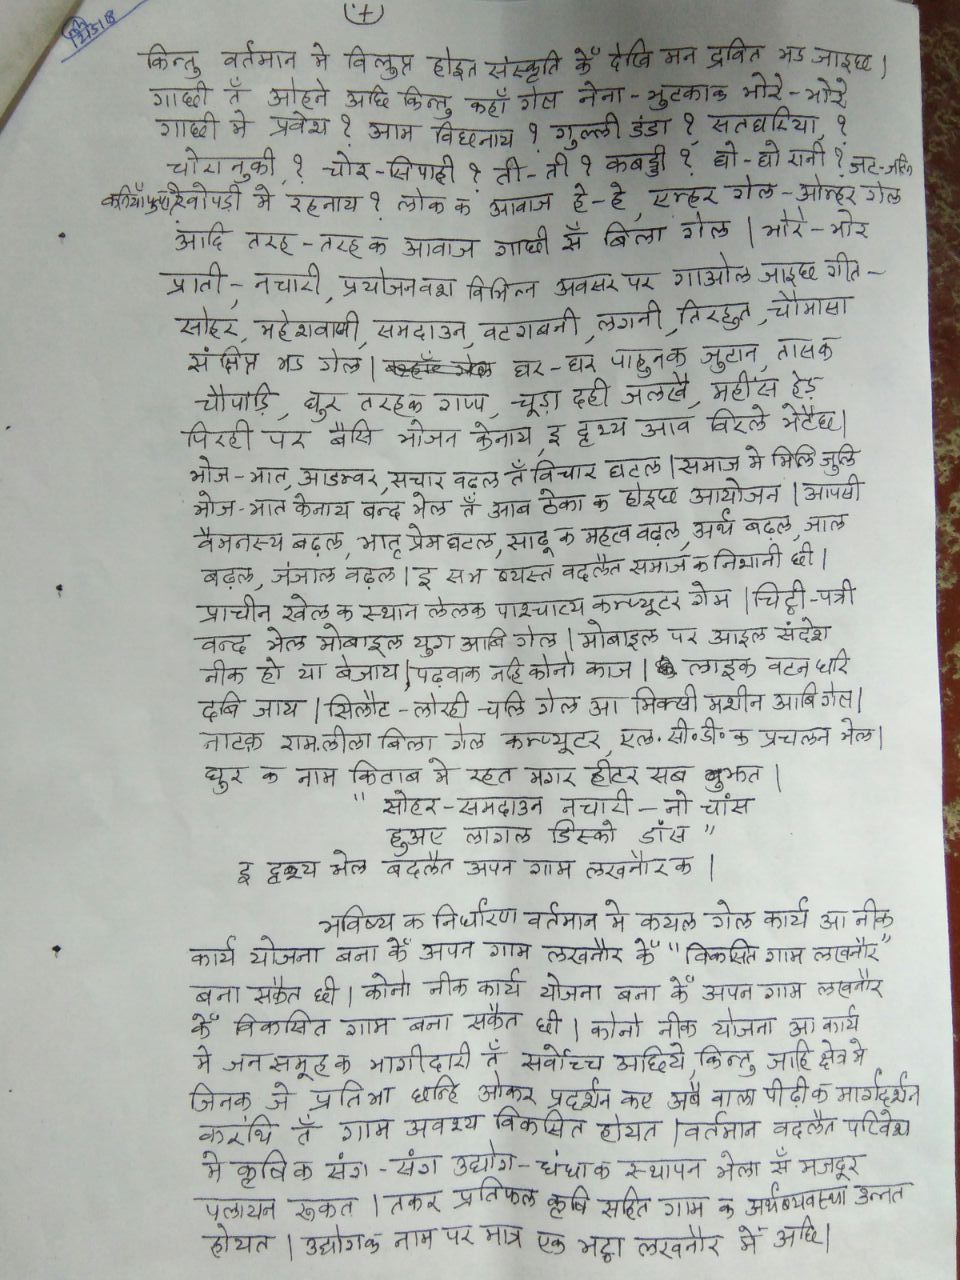 (7)
12/5/18
किन्तु वर्तमान मे विलुप्त होइत संस्कृति केँ देखि मन द्रवित भऽ जाइछ।
गाछी तँ ओहने अछि किन्तु कहाँ गेल नेना-भुटकाक भोरे-भोरे
गाछी मे प्रवेश? आम बिछनाय? गुल्ली डंडा? सतघरिया?
चोरा नुकी? चोर-सिपाही? ती-ती? कबड्डी? घो-घो रानी? जट-जटिन
खोपड़ी मे रहनाय? लोक क आवाज हे-हे, एम्हर गेल-ओम्हर गेल
आदि तरह-तरह क आवाज गाछी सँ बिला गेल। भोरे-भोर
प्राती-नचारी, प्रयोजनवश विभिन्न अवसर पर गाओल जाइछ गीत-
सोहर, महेशवाणी, समदाउन, वटगबनी, लगनी, तिरहुत, चौमासा
संक्षिप्त भऽ गेल। घर-घर पाहुनक जुटान, तासक
चौपाड़ि, घुर तरहक गप्प, चूड़ा दही जलखै, महींस हेड़
पिरही पर बैसि भोजन केनाय, इ दृश्य आब बिरले भेटैछ।
भोज-भात, आडम्बर, सचार बढ़ल तँ विचार घटल। समाज मे मिलि जुलि
भोज-भात केनाय बन्द भेल तँ आब ठेका क होइछ आयोजन। आपसी
वैमनस्य बढ़ल, भातृ प्रेम घटल, साढू क महत्व बढ़ल, अर्थ बढ़ल, जाल
बढ़ल, जंजाल बढ़ल। इ सभ व्यस्त बदलैत समाज क निशानी छी।
प्राचीन खेल क स्थान लेलक पाश्चात्य कम्प्यूटर गेम। चिट्ठी-पत्री
बन्द भेल मोबाइल युग आबि गेल। मोबाइल पर आइल संदेश
नीक हो या बेजाय, पढ़वाक नहि कोनो काज। लाइक बटन धरि
दबि जाय। सिलौट-लोरही चलि गेल आ मिक्सी मशीन आबि गेल।
नाटक रामलीला बिला गेल कम्प्यूटर, एल॰ सी॰ डी॰ क प्रचलन भेल।
घुर क नाम किताब मे रहत मगर हीटर सब बुझत।
" सोहर-समदाउन नचारी-नो चांस
हुअए लागल डिस्को डाँस "
इ दृश्य भेल बदलैत अपन गाम लखनौर क।
भविष्य क निर्धारण वर्तमान मे कयल गेल कार्य आ नीक
कार्य योजना बना केँ अपन गाम लखनौर केँ "विकसित गाम लखनौर"
बना सकैत छी। कोनो नीक कार्य योजना बना केँ अपन गाम लखनौर
केँ विकसित गाम बना सकैत छी। कोनो नीक योजना आ कार्य
मे जन समूह क भागीदारी तँ सर्वोच्च अछिये, किन्तु जाहि क्षेत्र मे
जिनक जे प्रतिभा छन्हि ओकर प्रदर्शन कए अबै वाला पीढ़ी क मार्गदर्शन
करथि तँ गाम अवश्य विकसित होयत। वर्तमान बदलैत परिवेश
मे कृषि क संग-संग उद्योग-धंधाक स्थापन भेला सँ मजदूर
पलायन रूकत। तकर प्रतिफल कृषि सहित गाम क अर्थव्यवस्था उन्नत
होयत। उद्योगक नाम पर मात्र एक भट्ठा लखनौर मेँ अछि।